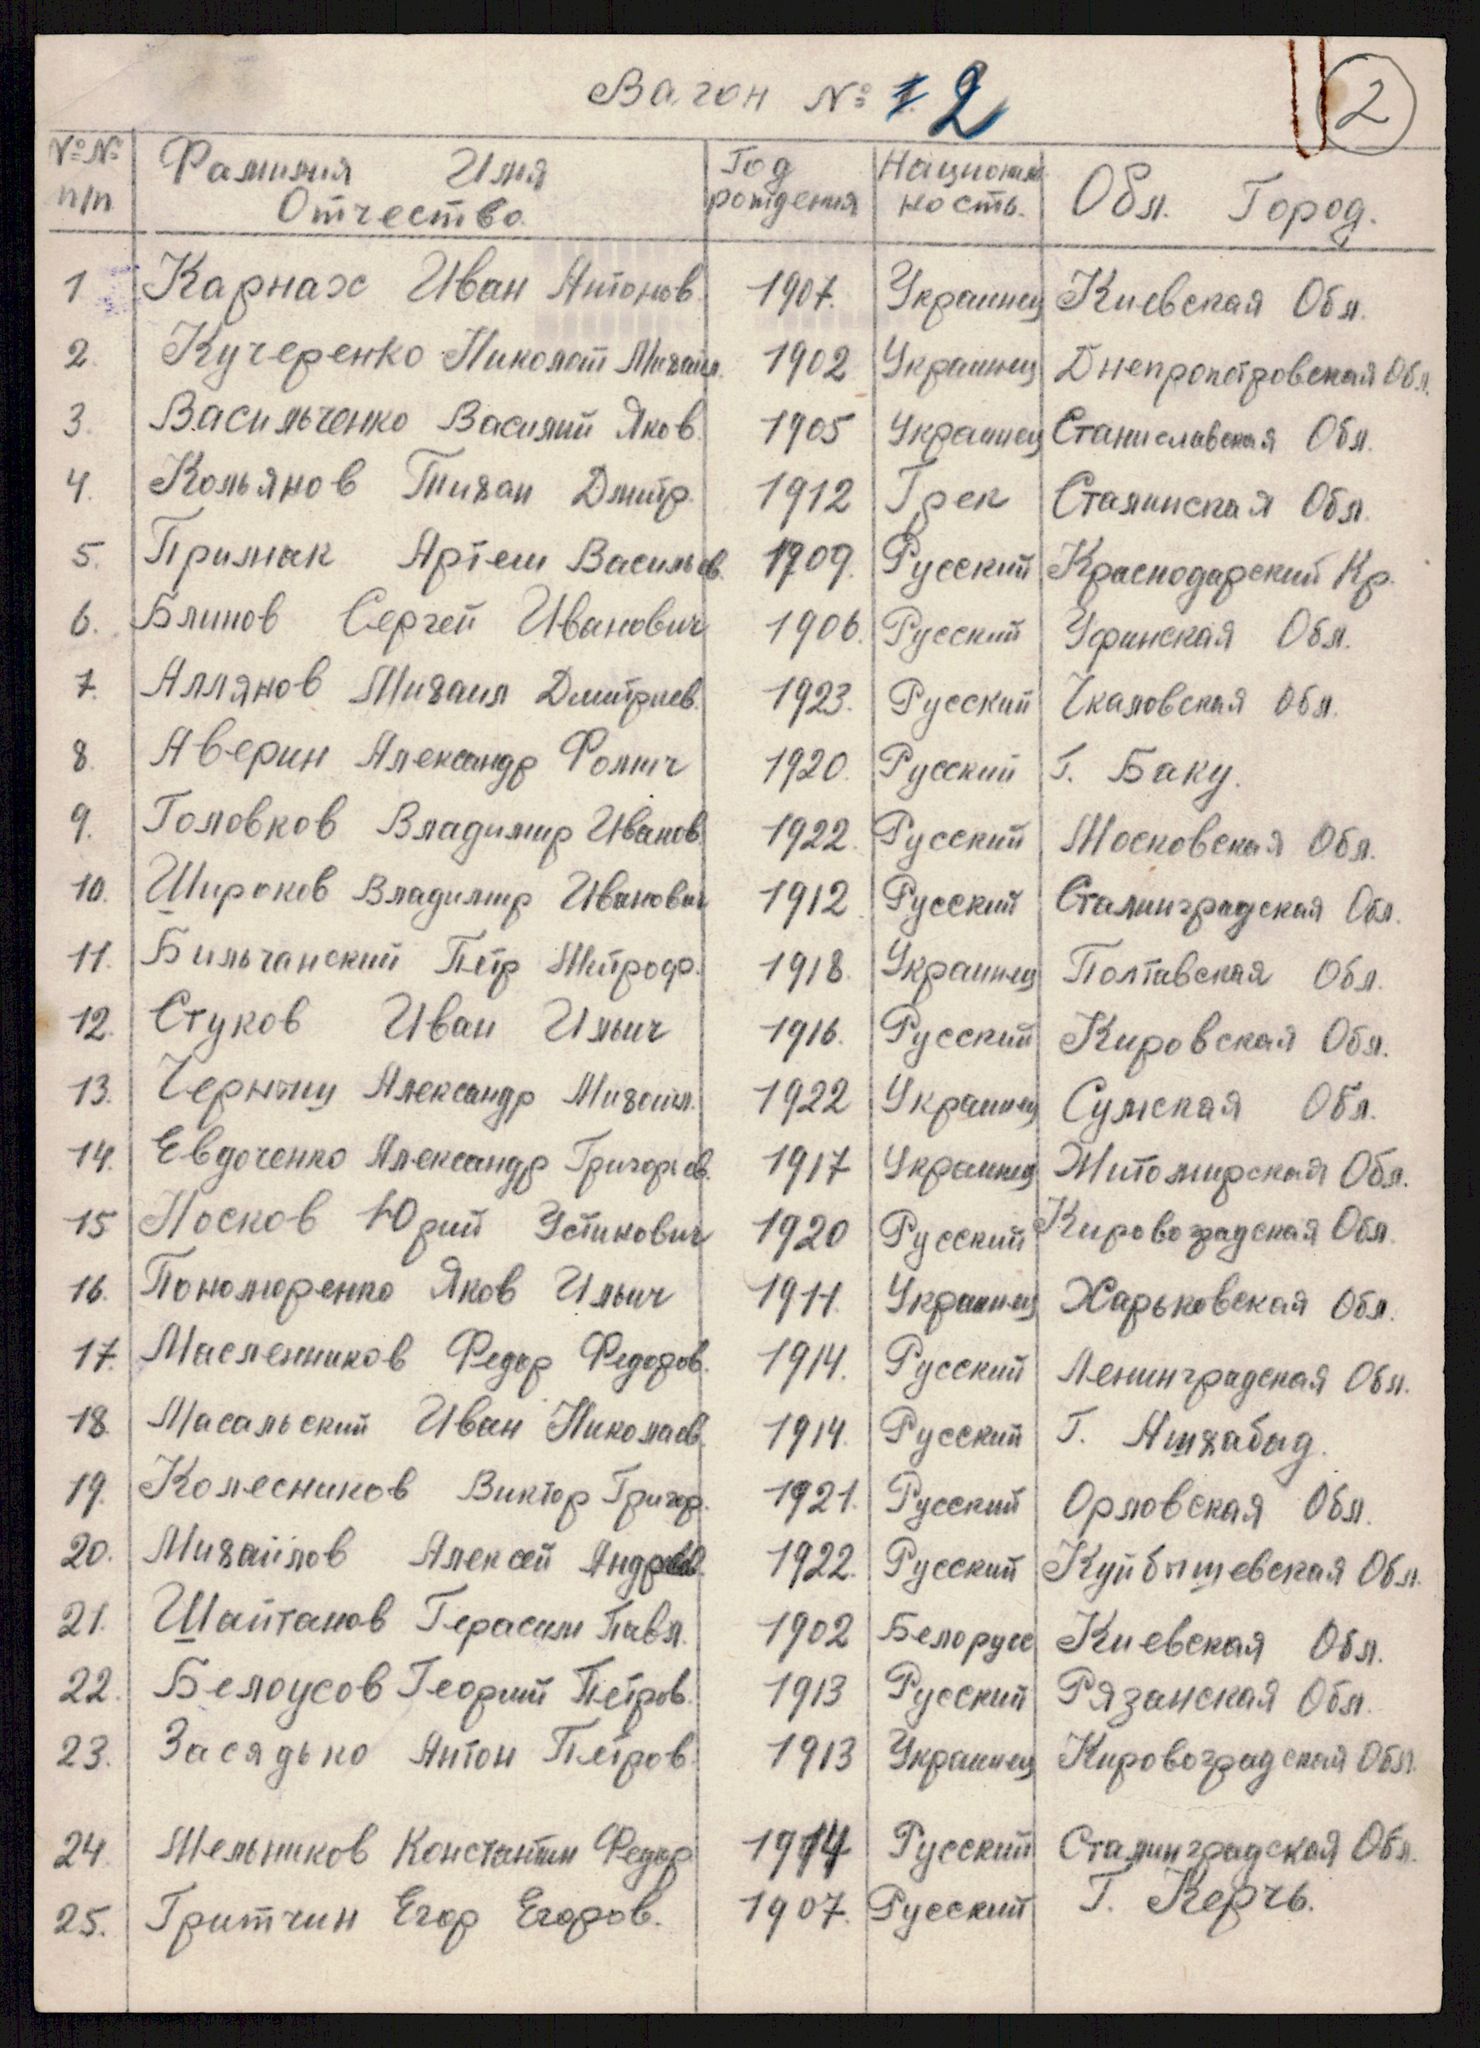 Вагон № 2
2
№№ Фамилия Имя Год Национал Обл. Город.
п/п Отчество рождения ность.
1 Карнах Иван Антонов. 1907. Украинец Киевская Обл.
2. Кучеренко Николай Михайл. 1902 Украинец Днепропетровская Обл.
3. Васильченко Василий Яков. 1905 Украинец Станиславская Обл.
4. Кольянов Дмитр. 1912 Грек Сталинская Обл.
5. Примак Артем Васильев. 1909. Русский Краснодарский Кр.
6. Блинов Сергей Иванович 1906. Русский Уфинская Обл.
7. Аллянов Михаил Дмитриев. 1923. Русский Чкаловская Обл.
8. Аверин Александр Фомич 1920. Русский Г. Баку.
9. Головков Владимир Иванов. 1922. Русский Московская Обл.
10. Широков Владимир Иванович 1912 Русский Сталинградская Обл.
11. Бильчанский Петр Митроф. 1918. Украинец Полтавская Обл.
12. Стуков Иван Ильич 1916. Русский Кировская Обл.
13. Александр Михайл. 1922 Украинец Сумская Обл.
14. Евдоченко Александр Григорьев. 1917 Украинец Житомирская Обл.
15 Носков Юрий Устинович 1920 Русский Кировоградская Обл.
16. Пономоренко Яков Ильич 1911. Украинец Харьковская Обл.
17. Масленников Федор Федоров. 1914. Русский Ленинградская Обл.
18. Масальский Иван Николаев. 1914. Русский Г. Ашхабад.
19. Колесников Виктор Григор. 1921. Русский Орловская Обл.
20. Михайлов Алексей Андреев. 1922. Русский Куйбышевская Обл.
21. Шайтанов Герасим Павл. 1902 Белорусс Киевская Обл.
22. Белоусов Георгий Петров. 1913 Русский Рязанская Обл.
23. Засядько Антон Петров. 1913 Украинец Кировоградская Обл.
24. Мельников Константин Федор 1914 Русский Сталинградская Обл.
25. Гритчин Егор Егоров. 1907. Русский Г. Керчь.